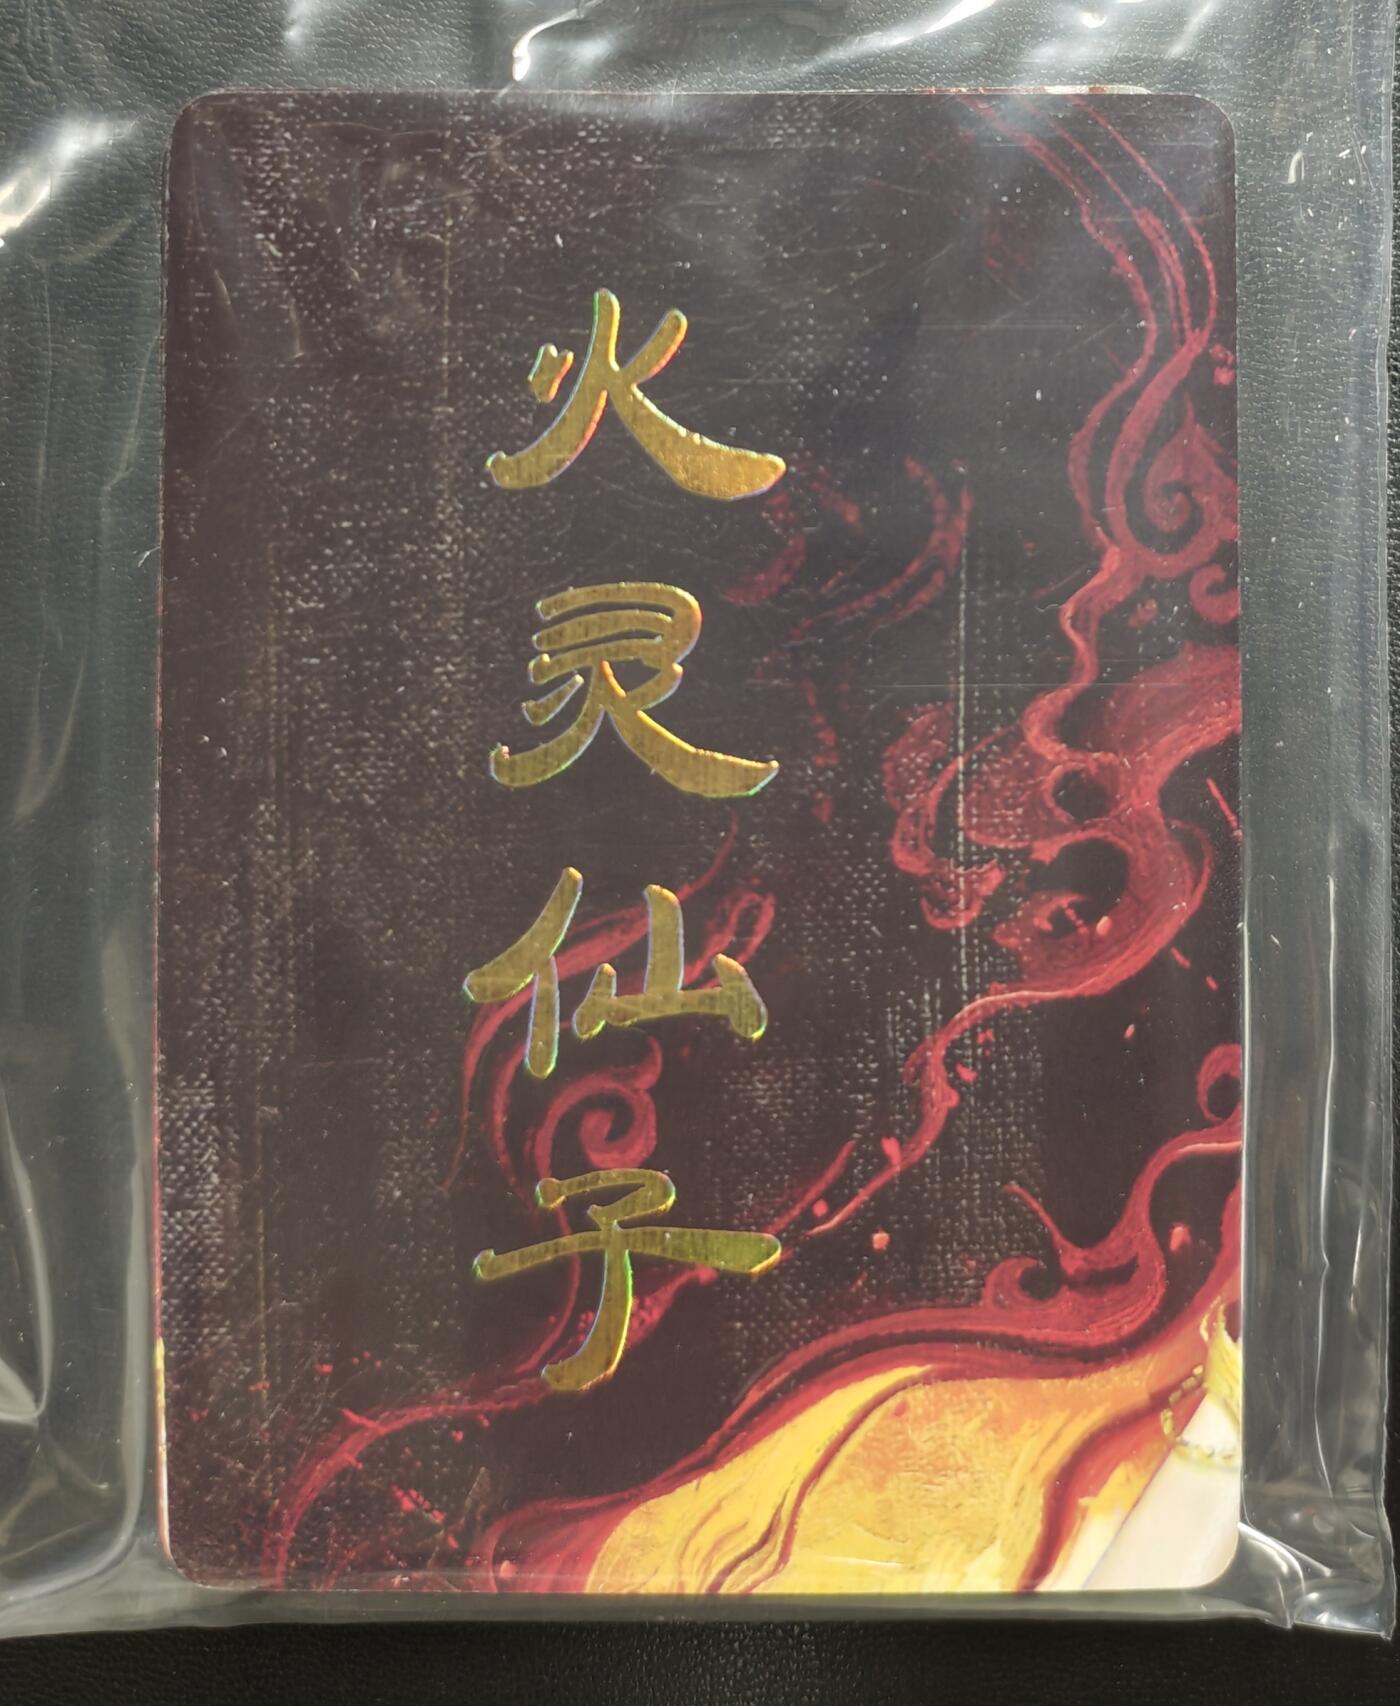 火灵仙子